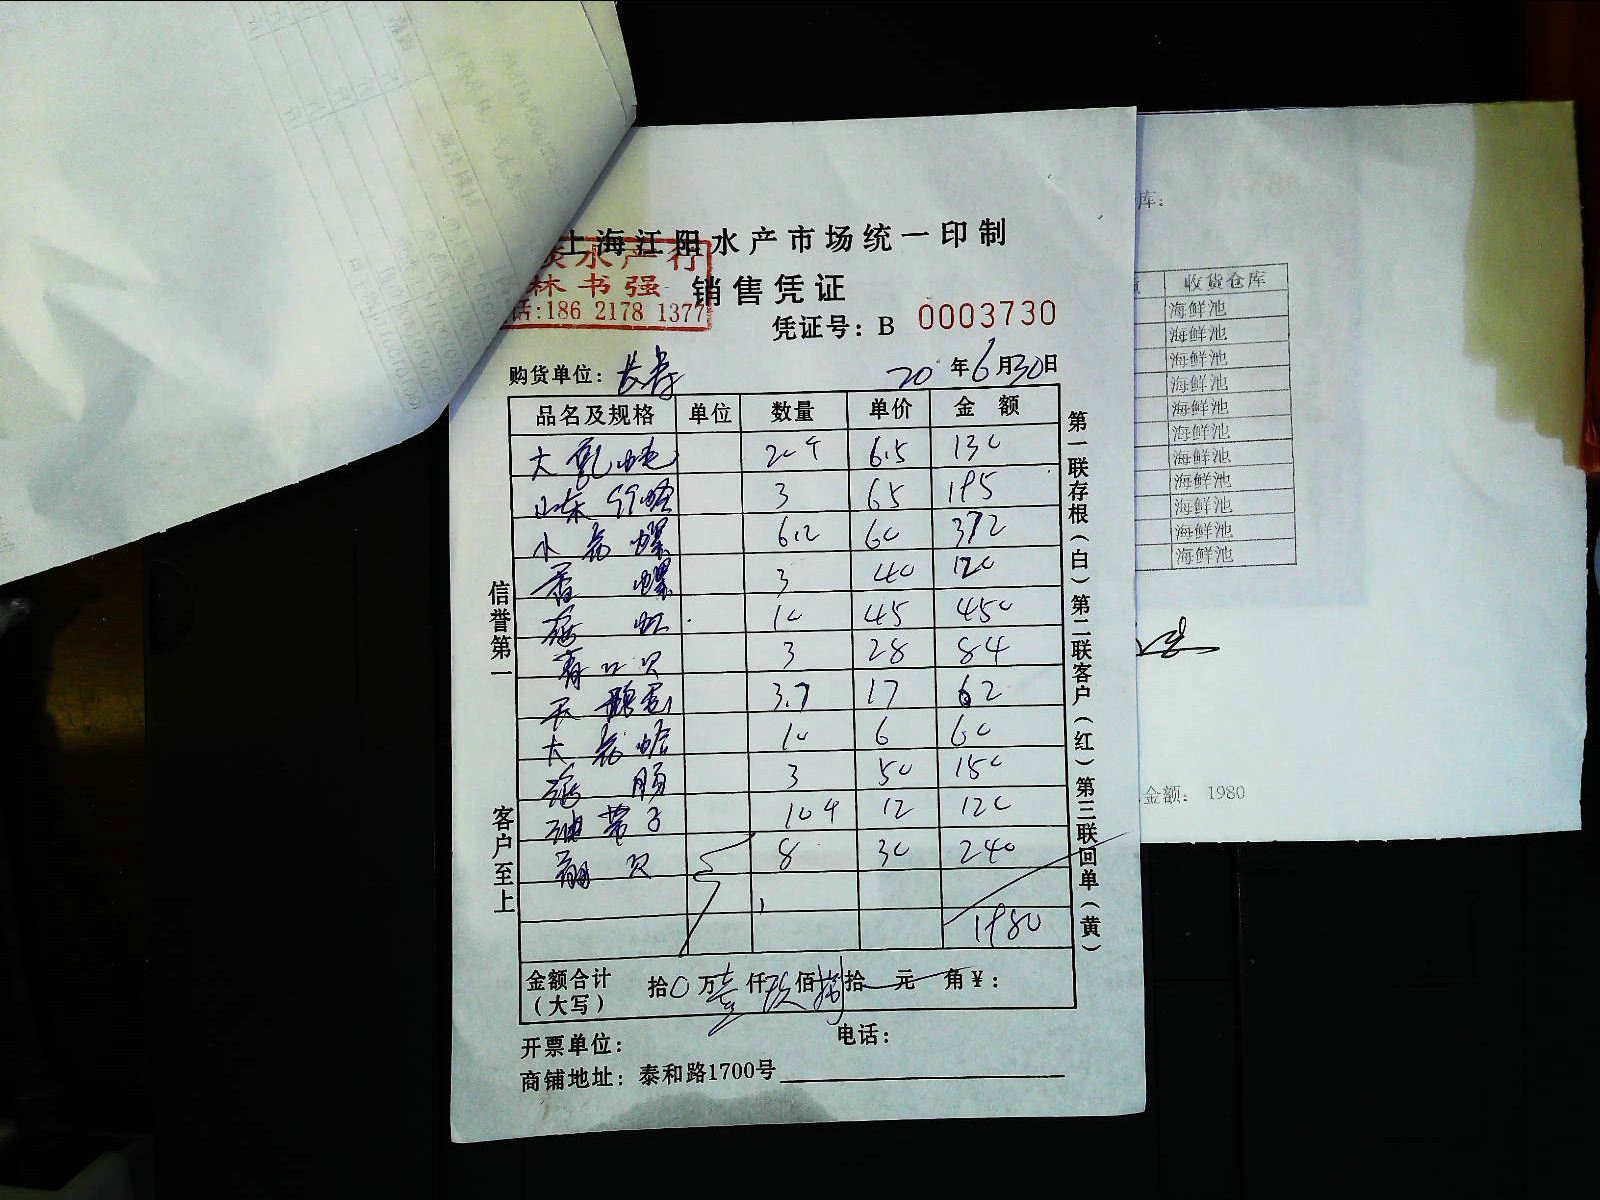 上海江阳水产市场统一印制
水产行
林书强
话:186 2178 1377
销售凭证
凭证号: B 0003730
购货单位: 长寿 20 年 6 月 30 日
品名及规格 单位 数量 单价 金 额
大 20个 6.5 130
山东 3 65 195
小花螺 6.2 60 372
香螺 3 40 120
10 45 450
青口贝 3 28 84
3.7 17 62
大花蛤 10 6 60
海肠 3 50 150
带子 10个 12 120
贝 8 30 240
1980
金额合计 拾0万壹仟玖佰捌拾 元 角 ¥:
(大写)
开票单位: 电话:
商铺地址: 泰和路1700号
信誉第一
客户至上
第一联存根(白)第二联客户(红)第三联回单(黄)
库:
收货仓库
海鲜池
海鲜池
海鲜池
海鲜池
海鲜池
海鲜池
海鲜池
海鲜池
海鲜池
海鲜池
海鲜池
金额: 1980